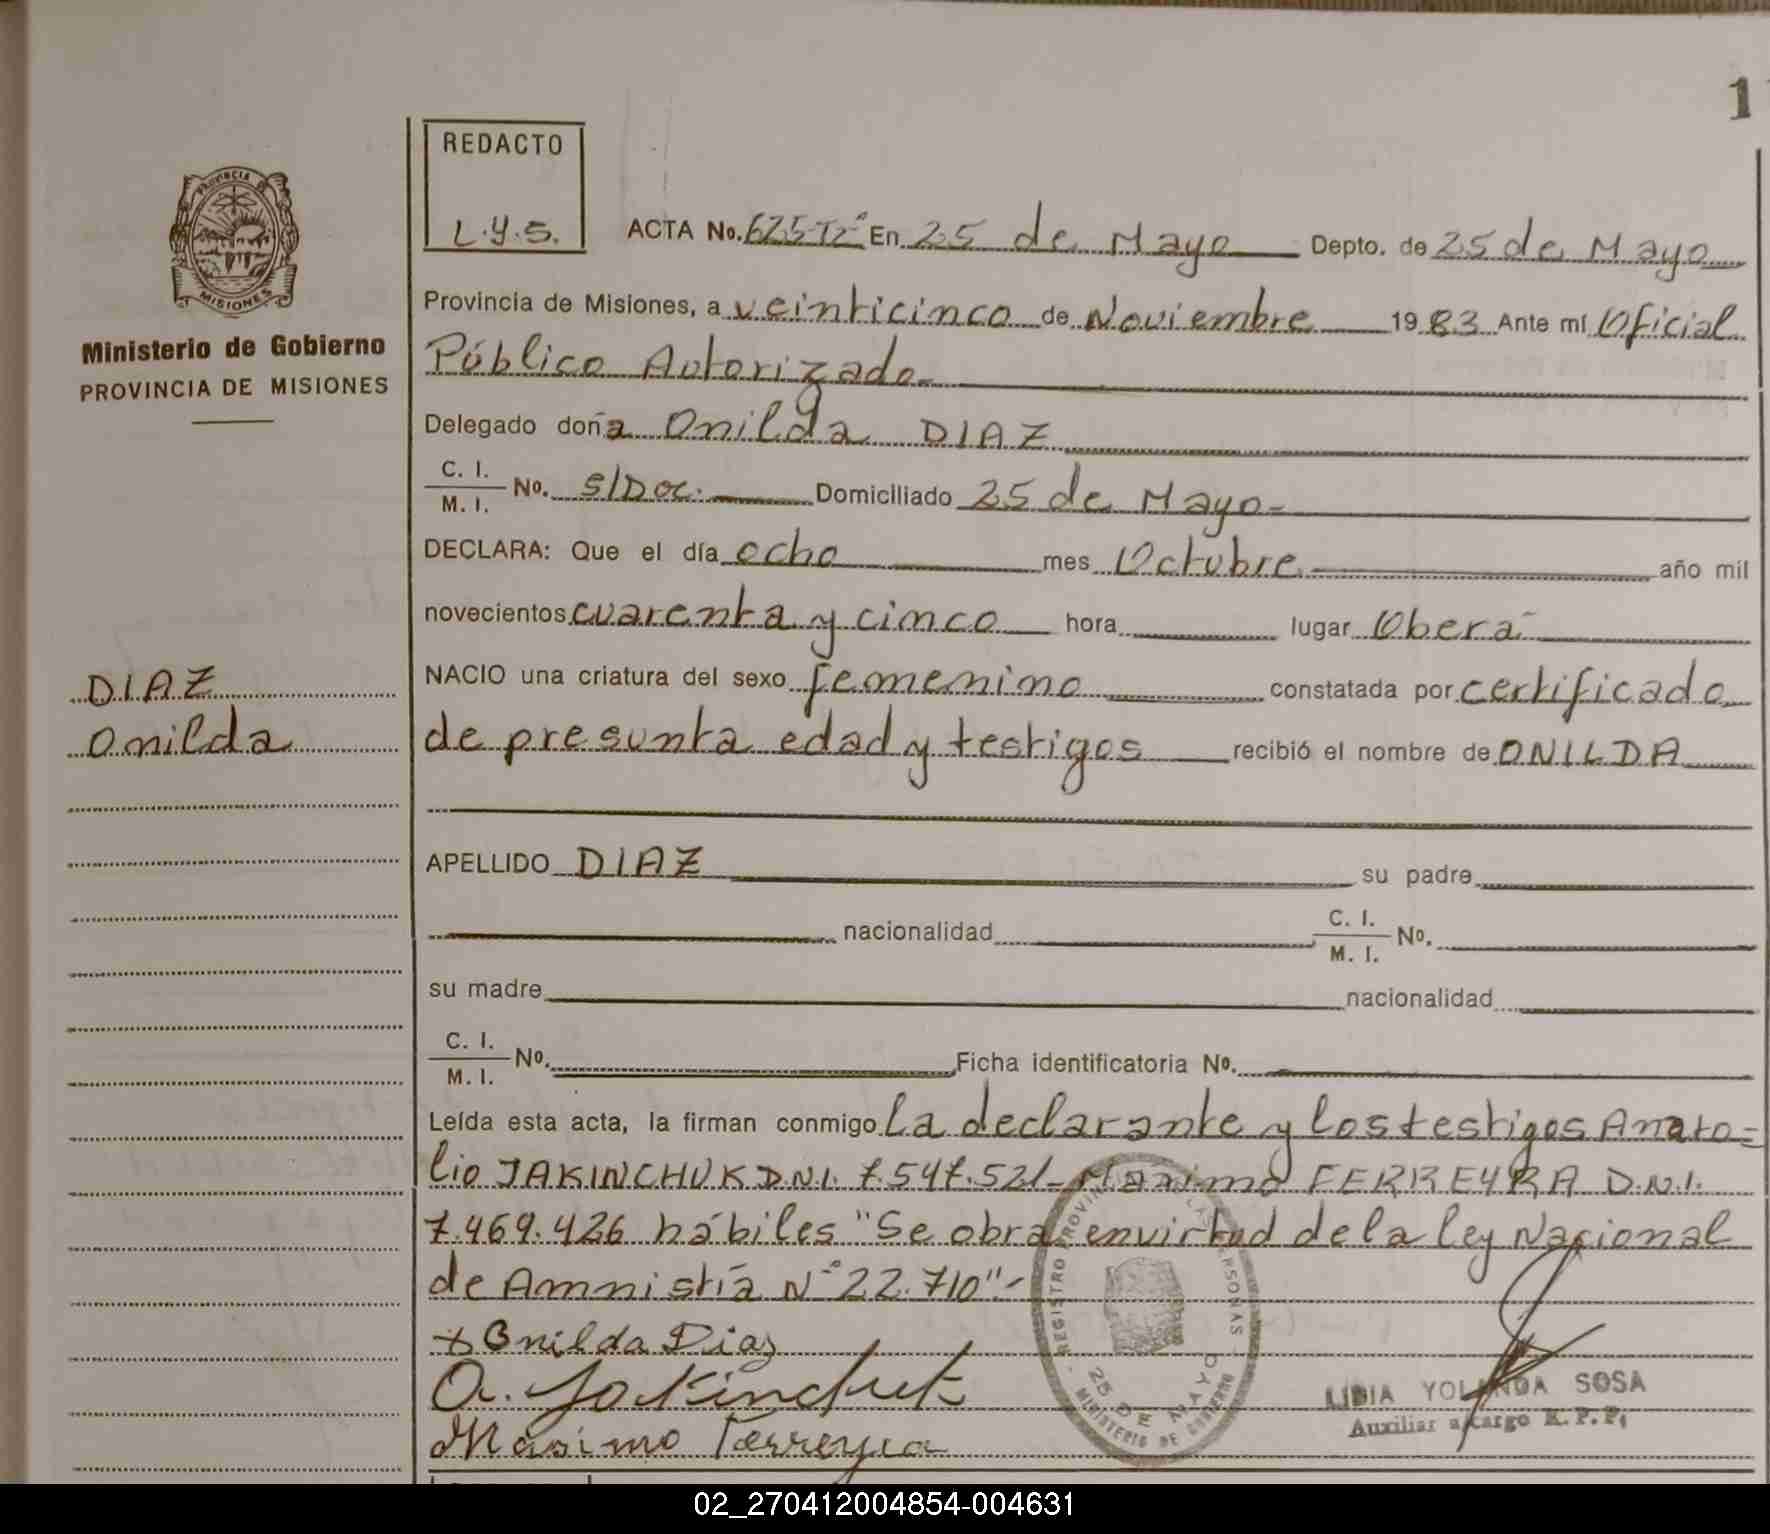 1
REDACTO
L.Y.S.
PROVINCIA DE
MISIONES
Ministerio de Gobierno
PROVINCIA DE MISIONES
DIAZ
Onilda
ACTA No. 625-Tº2º En 25 de Mayo Depto. de 25 de Mayo
Provincia de Misiones, a veinticinco de Noviembre 1983 Ante mí Oficial
Público Autorizado
Delegado doña Onilda DIAZ
C. I.
M. I. No. S/Doc. Domiciliado 25 de Mayo-
DECLARA: Que el día ocho mes Octubre año mil
novecientos cuarenta y cinco hora lugar Oberá
NACIO una criatura del sexo femenino constatada por certificado
de presunta edad y testigos recibió el nombre de ONILDA
APELLIDO DIAZ su padre
nacionalidad C. I.
M. I. No.
su madre nacionalidad
C. I.
M. I. No. Ficha identificatoria No.
Leída esta acta, la firman conmigo la declarante y los testigos Anato=
lio JAKINCHUK D.N.I. 7.547.521- Máximo FERREYRA D.N.I.
7.469.426 hábiles "Se obra en virtud de la ley Nacional
de Amnistía Nº 22.710".-
x Onilda Diaz
A. Jakinchuk
Masimo Ferreyra
REGISTRO PROVINCIAL DE LAS PERSONAS
25 DE MAYO
MINISTERIO DE GOBIERNO
LIDIA YOLANDA SOSA
Auxiliar a cargo R. P. P.
02_270412004854-004631